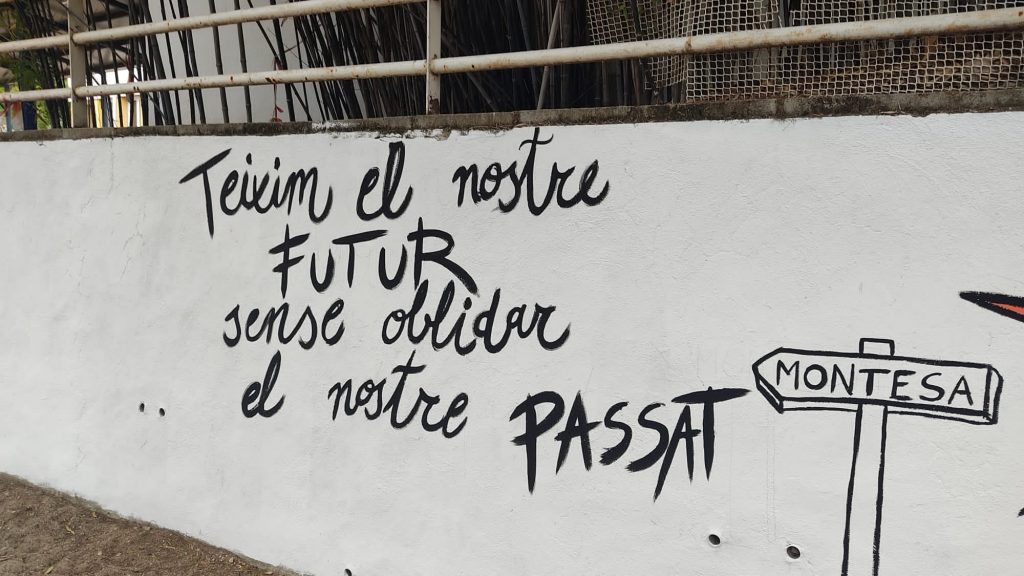 Teixim el nostre
FUTUR
sense oblidar
el nostre PASSAT
MONTESA